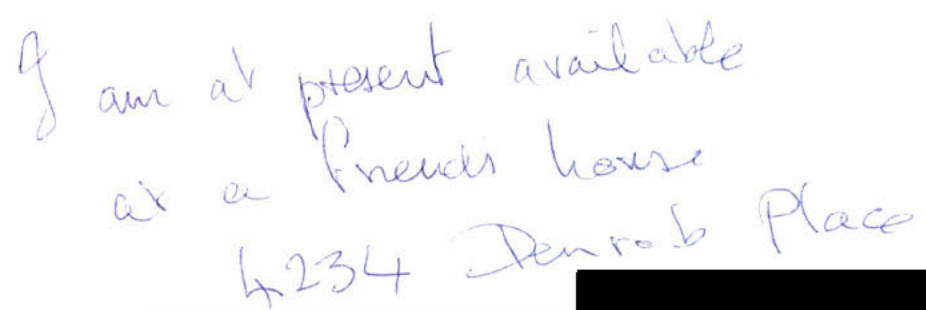 I am at present available
at a friends house
4234 Denrob Place